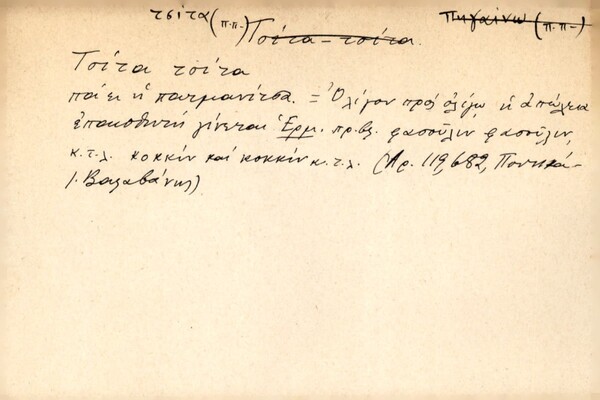 τσίτα (π.π.) Τσίτα-τσίτα. Πηγαίνω (π.π.)
Τσίτα τσίτα
πάει ἡ πατμανίτσα. = Ὀλίγον πρὸς ὀλίγον ἡ ἀπώλεια
ἐπαισθητὴ γίνεται Ἑρμ. πρβλ. φασοῦλιν, φασοῦλιν,
κ.τ.λ. κοκκὶν καὶ κοκκὶν κ.τ.λ. (Ἀρ. 119, 682, Ποντικά-
Ι. Βαλαβάνης)